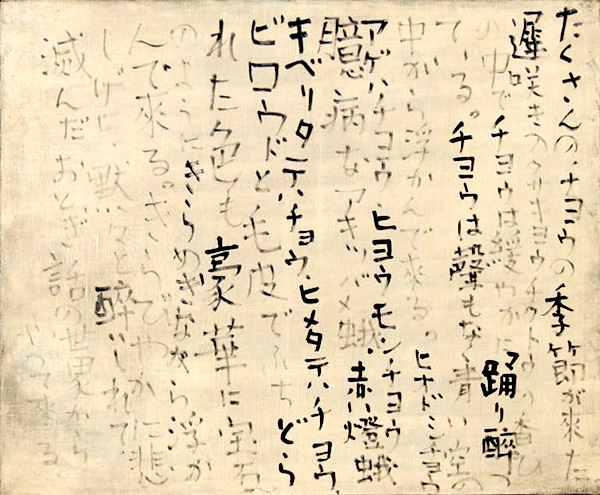 たくさんのチヨウの季節が来た
遅咲きのクサキヨウチクトウの香ひ
の中でチヨウは緩やかに踊り醉つ
ている。チヨウは聲もなく青い空の
中から浮かんで来る。ヒナドシチョウ
アゲハチョウ、ヒヨウモンチヨウ
臆病なアキツバメ蛾 赤い燈蛾
キベリタテハチョウ、ヒメタテハチョウ
ビロウドと毛皮でふちどら
れた色も豪華に宝石
のようにきらめきながら浮か
んで来る。きらびやかに悲
しげに、黙々と醉いしれて
滅んだおとぎ話の世界から
やって来る